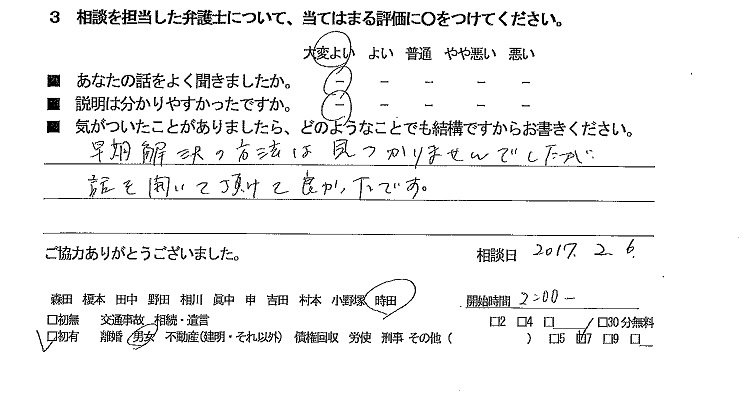 3 相談を担当した弁護士について、当てはまる評価に〇をつけてください。
大変よい よい 普通 やや悪い 悪い
■ あなたの話をよく聞きましたか。 － － － － －
■ 説明は分かりやすかったですか。 － － － － －
■ 気がついたことがありましたら、どのようなことでも結構ですからお書きください。
早期解決の方法は見つかりませんでしたが
話を聞いて頂けて良かったです。
ご協力ありがとうございました。 相談日 2017. 2. 6.
森田 榎本 田中 野田 相川 眞中 申 吉田 村本 小野塚 時田 開始時間 2:00－
□初無 交通事故 相続・遺言 □2 □4 □___/□30分無料
□初有 離婚 男女 不動産(建明・それ以外) 債権回収 労使 刑事 その他 ( ) □5 □7 □9 □__